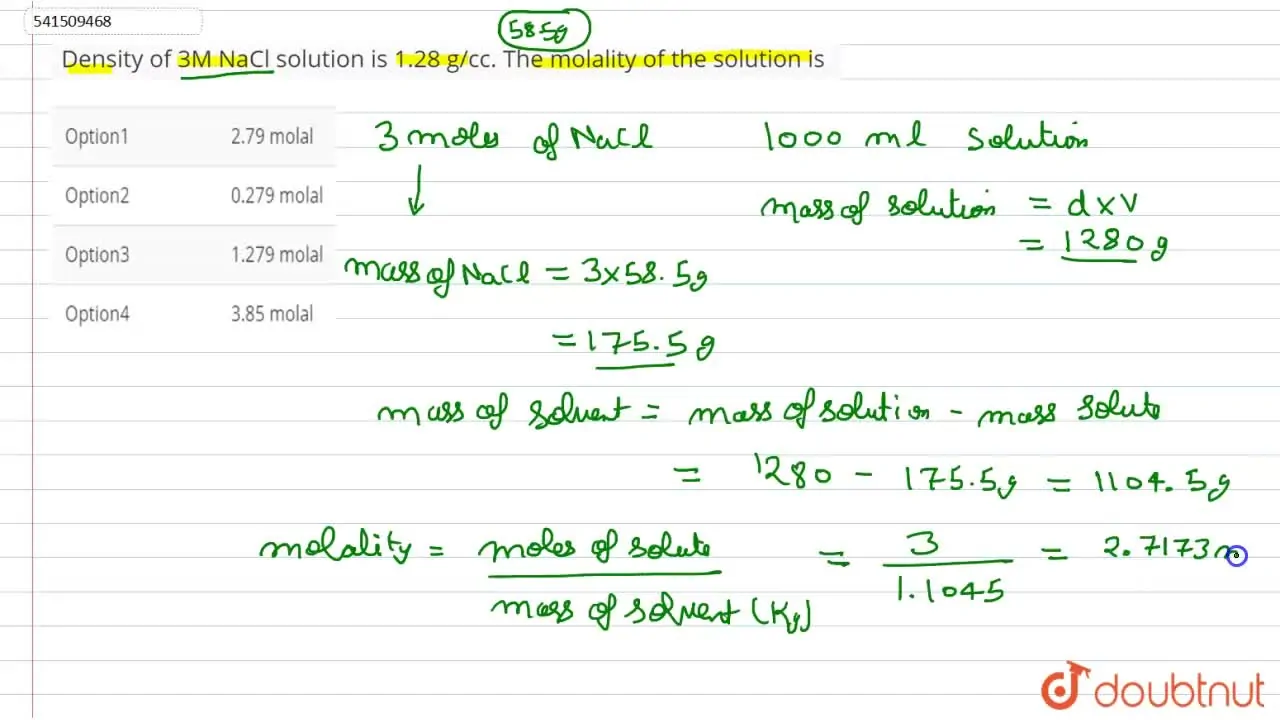 541509468
58.5g
Density of 3M NaCl solution is 1.28 g/cc. The molality of the solution is
Option1 2.79 molal
Option2 0.279 molal
Option3 1.279 molal
Option4 3.85 molal
3 moles of NaCl 1000 ml solution
mass of solution = d x V
= 1280 g
mass of NaCl = 3x58.5g
= 175.5 g
mass of solvent = mass of solution - mass solute
= 1280 - 175.5g = 1104.5g
molality = moles of solute / mass of solvent (Kg) = 3 / 1.1045 = 2.7173 m
doubtnut